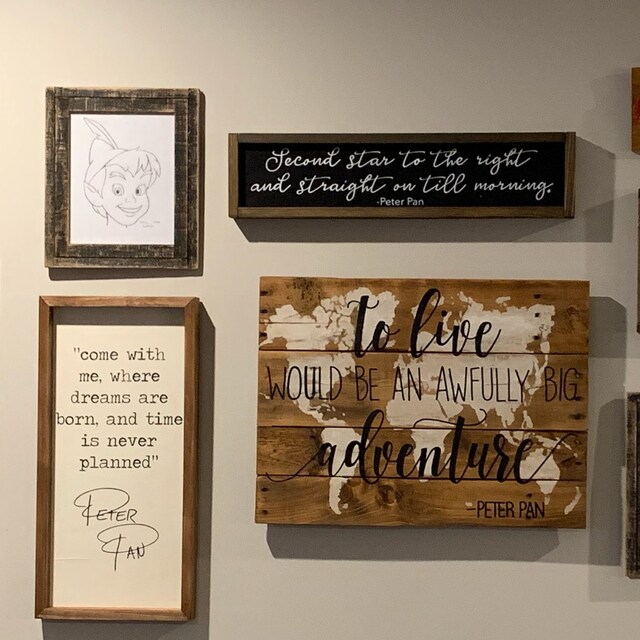 Second star to the right
and straight on till morning.
-Peter Pan
"come with
me, where
dreams are
born, and time
is never
planned"
PETER
PAN
to live
WOULD BE AN AWFULLY BIG
adventure
-PETER PAN